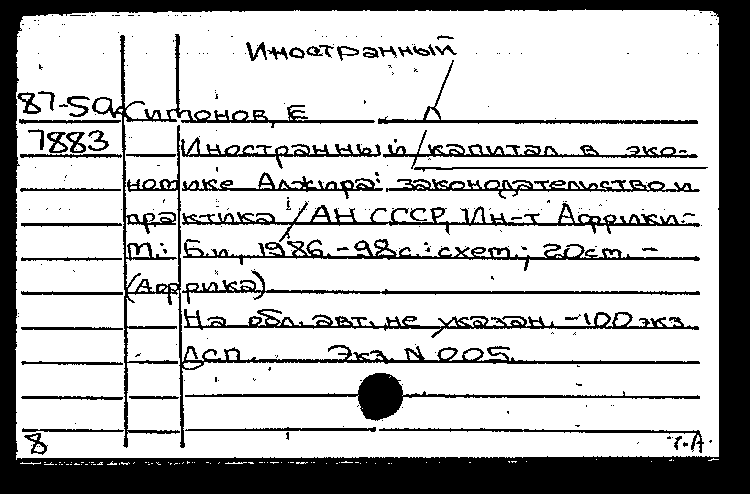 Иностранный
87-5 Симонов, Е
7883 Иностранный капитал в эко-
номике Алжира: законодательство и
практика / АН СССР, Ин-т Африки.-
М.: Б.и., 1986.-98с.: схем.; 20см. -
(Африка).
На обл. авт. не указан. -100 экз.
ДСП. Экз. N 005.
8